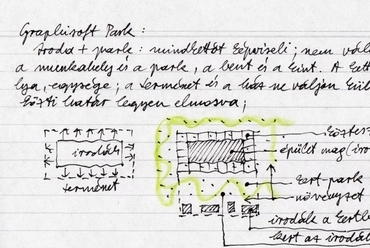 Graphisoft Park:
Iroda + park: mindkettőt képviseli; nem vál
a munkahely és a park, a bent és a kint. A kett
lya, egysége; a természet és a ház ne váljon kül
közti határ legyen elmosva;
irodák
természet
közter
épület mag (iro
kert-park
növényzet
irodák a kertb
kert az irodák